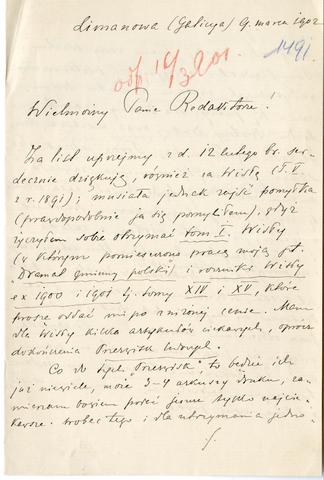 Limanowa (Galicya) 9. marca 1902
odp 10/3 901.
1491.
Wielmożny Panie Redaktorze!
Za list uprzejmy z d. 12 lutego br. ser-
decznie dziękuję, również za Wisłę (T. V.
z r. 1891); musiała jednak zajść pomyłka
(prawdopodobnie ja się pomyliłem), gdyż
życzyłem sobie otrzymać tom I. Wisły
(w którym pomieszczono pracę moją pt.
"Dramat gminny polski") i roczniki Wisły
ex 1900 i 1901 tj. tomy XIV i XV, które
proszę osłać mi po zniżonej cenie. Mam
dla Wisły kilka artykułów ciekawych, oprócz
dokończenia Przezwisk ludowych.
Co do tych "Przezwisk", to będzie ich
już niewiele, może 3-4 arkuszy druku, za-
mierzam bowiem podać jeszcze tylko najcie-
kawsze. Wobec tego i dla utrzymania jedno-